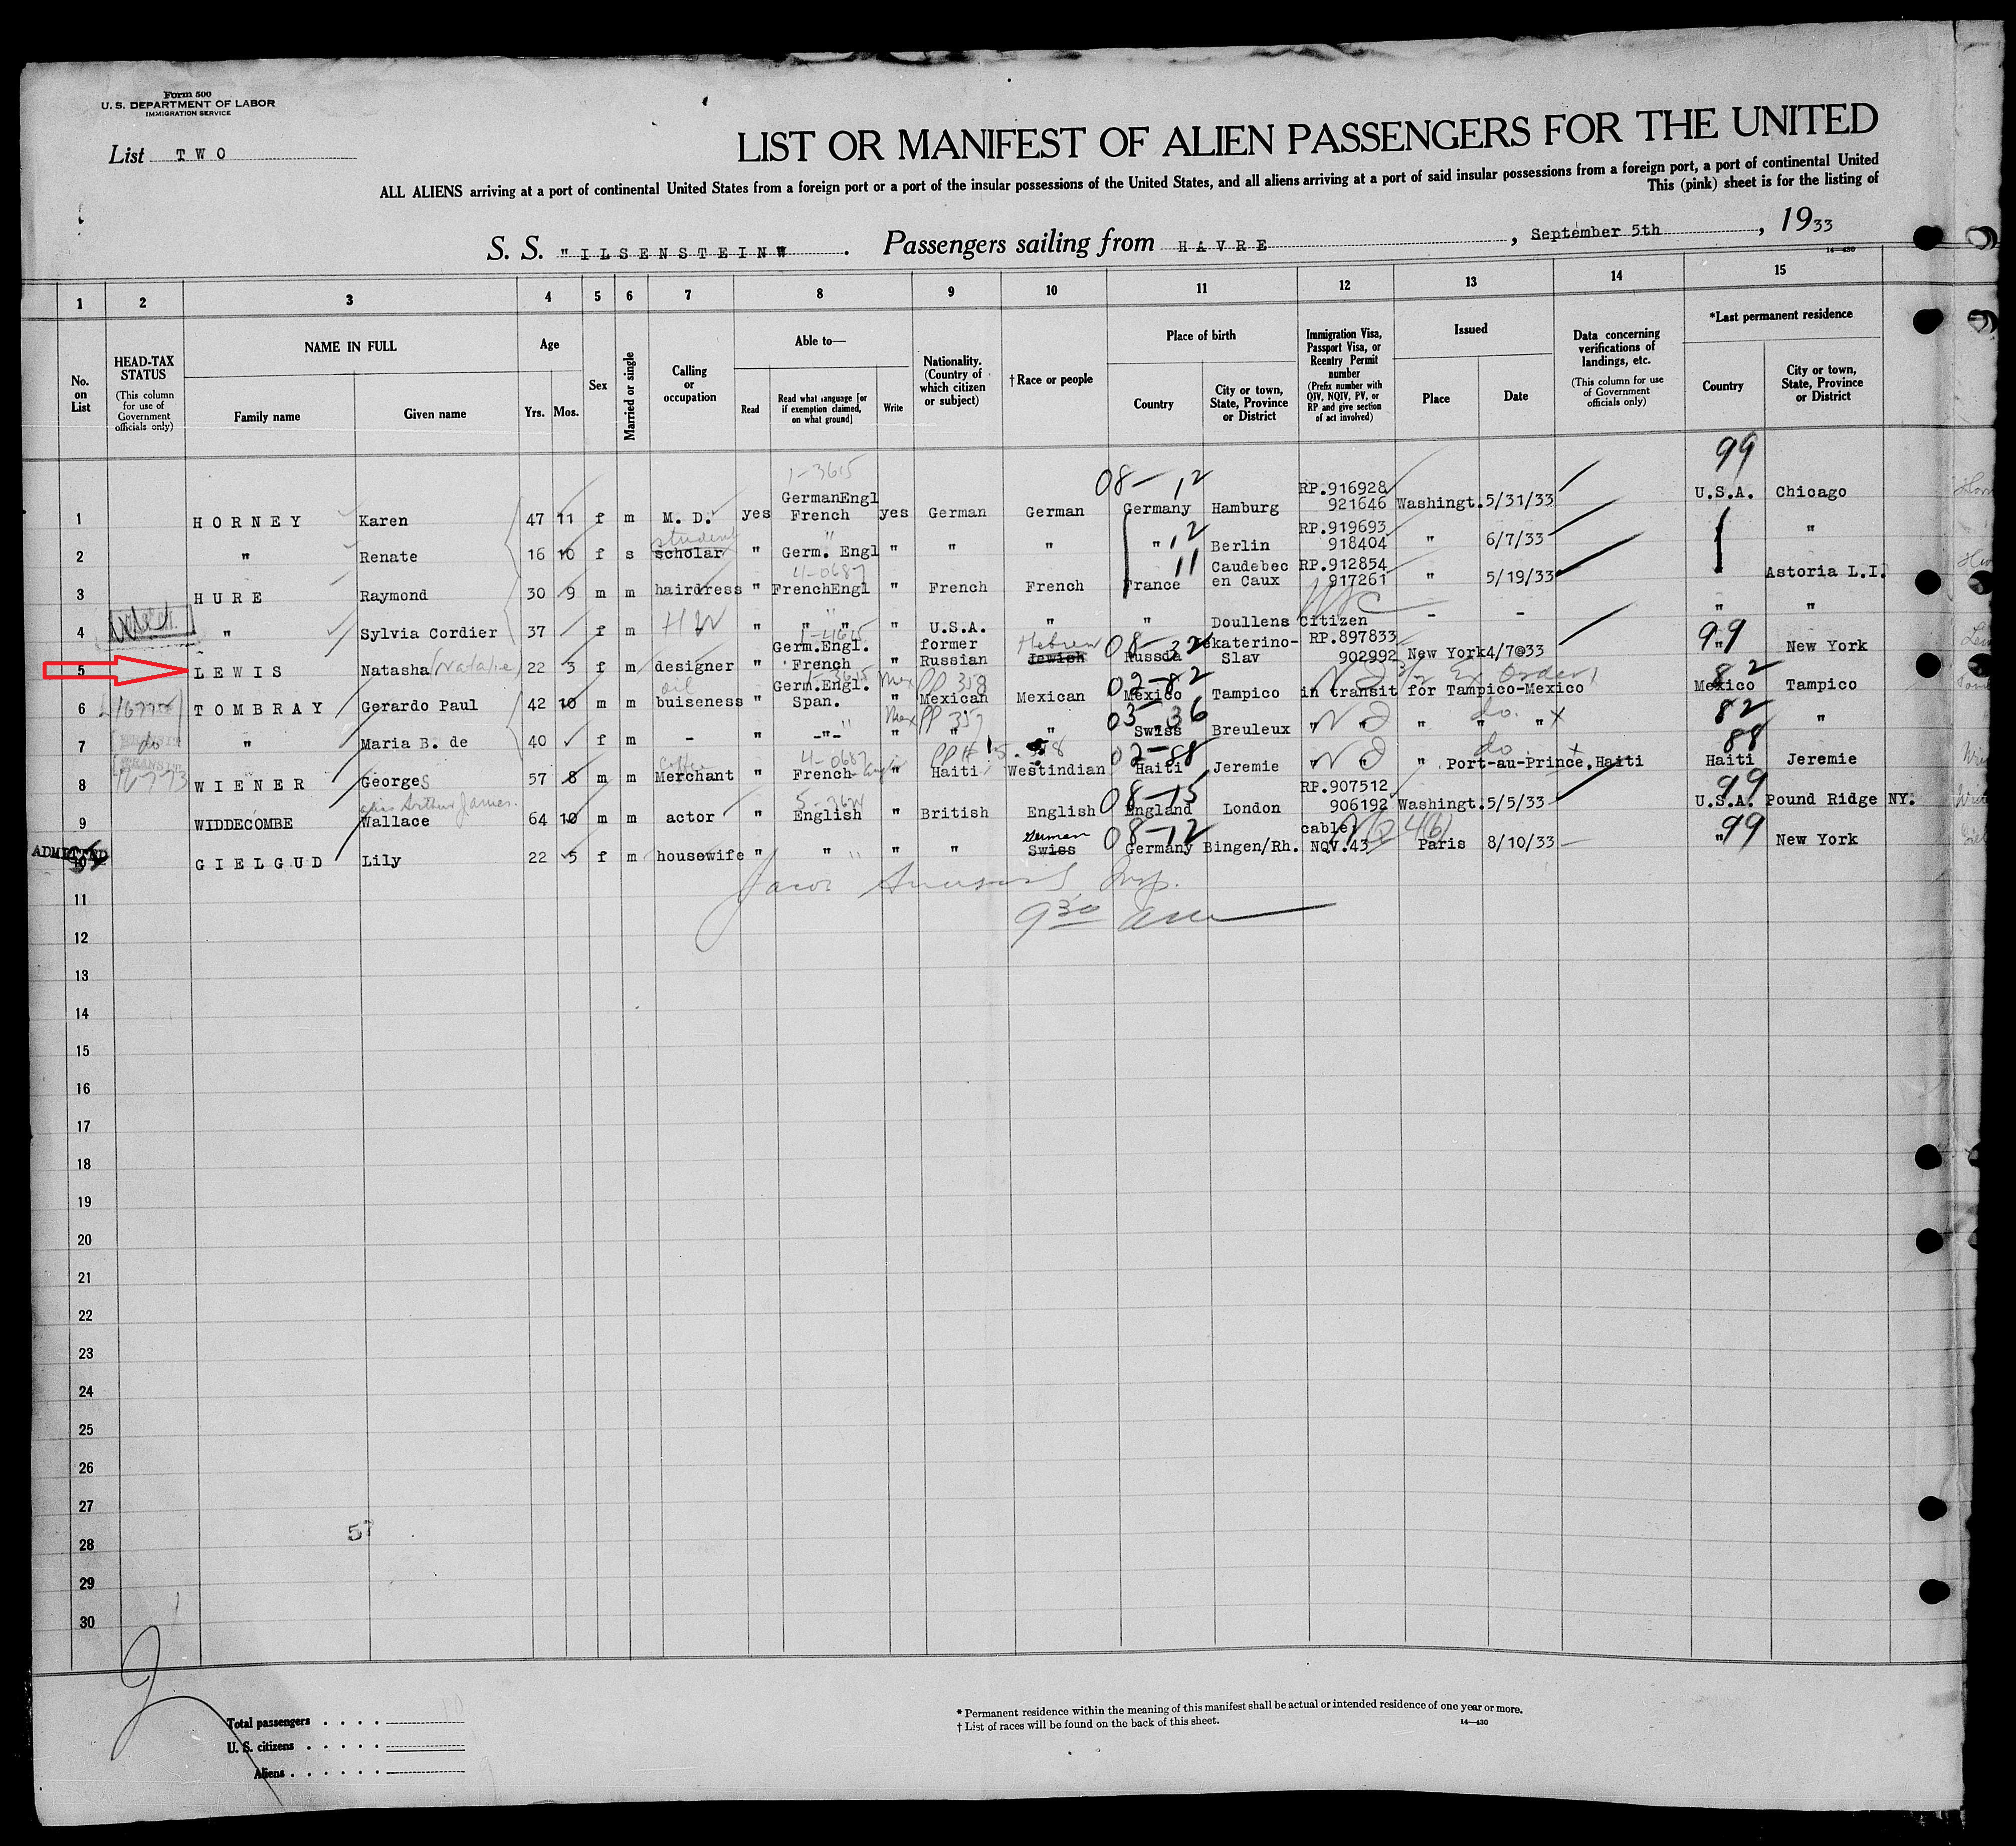 Form 500
U. S. DEPARTMENT OF LABOR
IMMIGRATION SERVICE
List TWO
LIST OR MANIFEST OF ALIEN PASSENGERS FOR THE UNITED
ALL ALIENS arriving at a port of continental United States from a foreign port or a port of the insular possessions of the United States, and all aliens arriving at a port of said insular possessions from a foreign port, a port of continental United
This (pink) sheet is for the listing of
S. S. "ILSENSTEIN" . Passengers sailing from HAVRE , September 5th , 1933
14—430
1 2 3 4 5 6 7 8 9 10 11 12 13 14 15
No. on List
HEAD-TAX STATUS (This column for use of Government officials only)
NAME IN FULL
Family name Given name
Age
Yrs. Mos.
Sex
Married or single
Calling or occupation
Able to—
Read Read what language [or if exemption claimed, on what ground] Write
Nationality. (Country of which citizen or subject)
†Race or people
Place of birth
Country City or town, State, Province or District
Immigration Visa, Passport Visa, or Reentry Permit number (Prefix number with QIV, NQIV, PV, or RP and give section of act involved)
Issued
Place Date
Data concerning verifications of landings, etc. (This column for use of Government officials only)
*Last permanent residence
Country City or town, State, Province or District
99
1-3615 08- 12
1 HORNEY Karen 47 11 f m M. D. yes GermanEngl French yes German German Germany Hamburg RP.916928 921646 Washingt. 5/31/33 U.S.A. Chicago
student
2 " Renate 16 10 f s scholar " Germ. Engl " " " " 12 Berlin RP.919693 918404 " 6/7/33 "
4-0687 11
3 HURE Raymond 30 9 m m hairdress " FrenchEngl " French French France Caudebec en Caux RP.912854 917261 " 5/19/33 Astoria L.I.
4 " Sylvia Cordier 37 f m HW " " " " U.S.A. " " Doullens Citizen - - " "
Hebrew 08-32 99
5 LEWIS Natasha (Natalie) 22 3 f m designer " Germ.Engl. French " former Russian Jewish Russia Ekaterino-Slav RP.897833 902992 New York 4/7@33 " New York
oil 1-3615 Mex PP 358 02-82 Ex Order 82
6 TOMBRAY Gerardo Paul 42 10 m m buiseness " Germ.Engl. Span. " Mexican Mexican Mexico Tampico in transit for Tampico-Mexico Mexico Tampico
Mex PP 357 03-36 do. x 82
7 do " Maria B. de 40 f m - " -"- " " " Swiss Breuleux " " " " " "
TRANSIT Coffee 4-0687 02-88 do 88
8 WIENER Georges 57 8 m m Merchant " French " Haiti Westindian Haiti Jeremie " " " Port-au-Prince, Haiti Haiti Jeremie
alias Arthur James. 08-15 99
9 WIDDECOMBE Wallace 64 10 m m actor " English " British English England London RP.907512 906192 Washingt. 5/5/33 U.S.A. Pound Ridge NY.
ADMITTED German 08-12 4(6) 99
10 GIELGUD Lily 22 5 f m housewife " " " " Swiss Germany Bingen/Rh. cable NQV.43 Paris 8/10/33 " New York
Insp.
9 30 am
11
12
13
14
15
16
17
18
19
20
21
22
23
24
25
26
27
57
28
29
30
Total passengers . . . .
U. S. citizens . . . . .
Aliens . . . . . .
* Permanent residence within the meaning of this manifest shall be actual or intended residence of one year or more.
† List of races will be found on the back of this sheet.
14—430